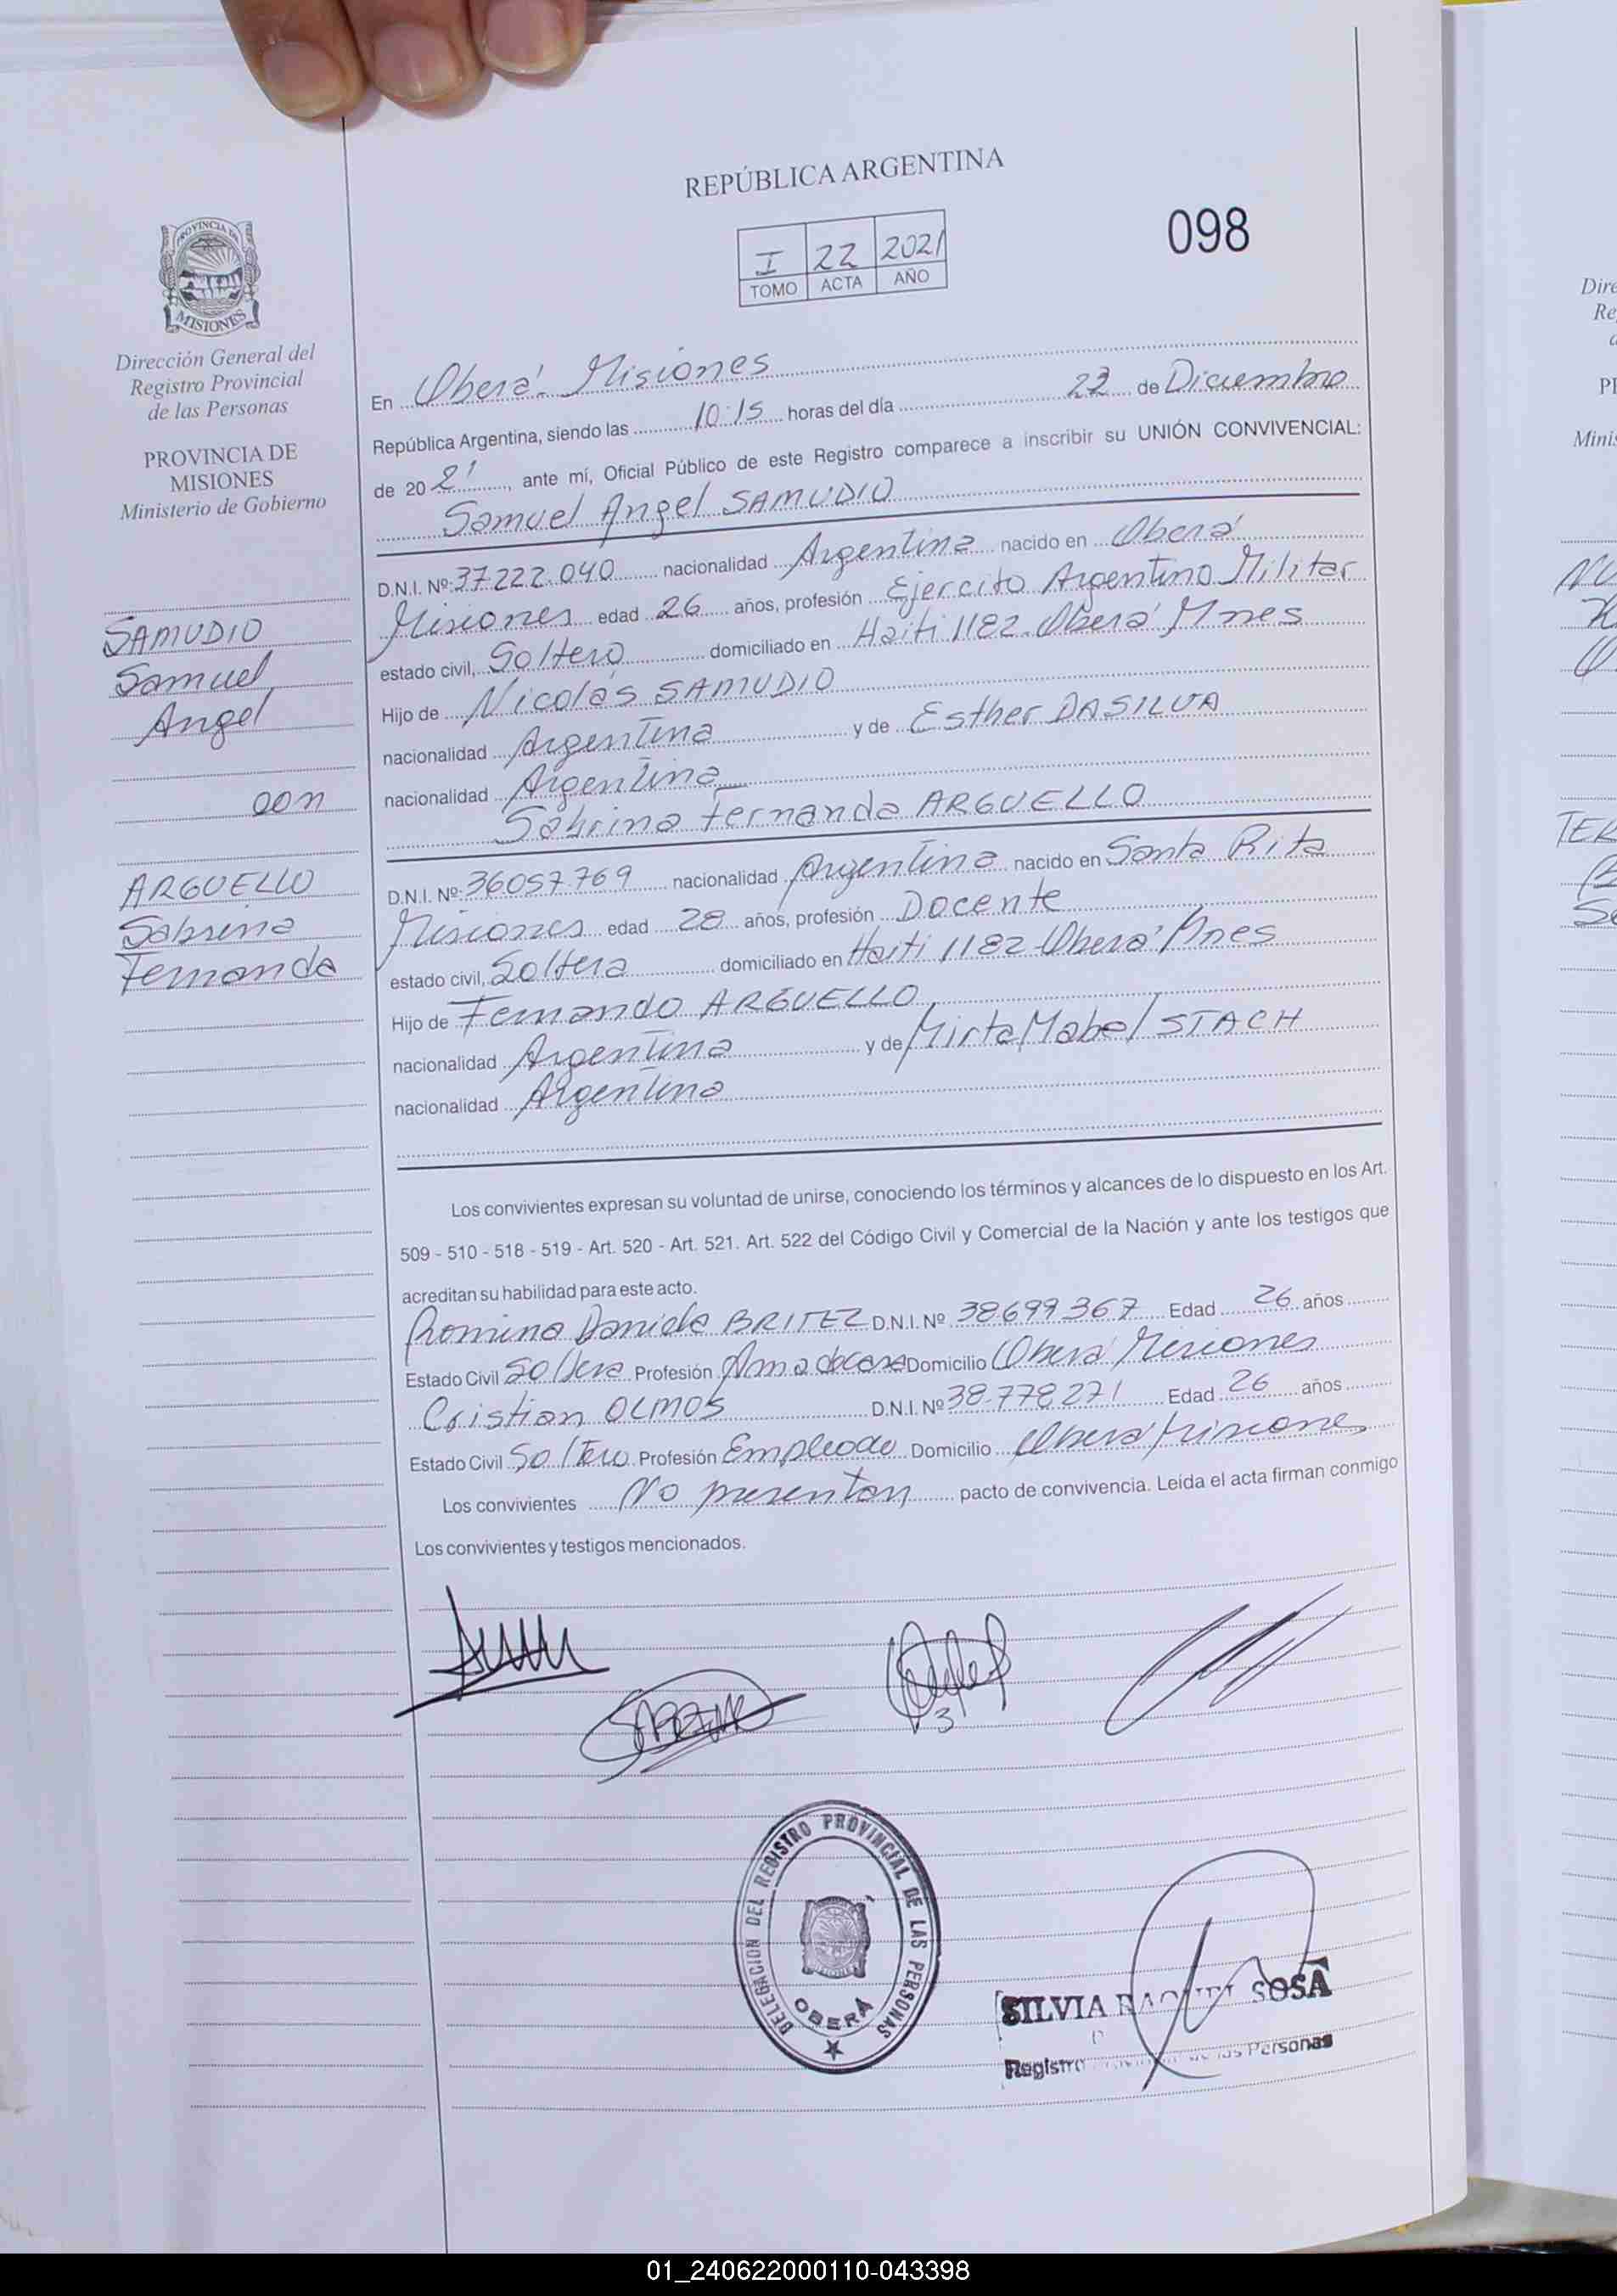 REPÚBLICA ARGENTINA
098
I 22 2021
TOMO ACTA AÑO
PROVINCIA DE
MISIONES
Dirección General del
Registro Provincial
de las Personas
PROVINCIA DE
MISIONES
Ministerio de Gobierno
SAMUDIO
Samuel
Angel
con
ARGUELLO
Sabrina
Fernanda
En Oberá Misiones
República Argentina, siendo las 10:15 horas del día 22 de Diciembre
de 2021, ante mí, Oficial Público de este Registro comparece a inscribir su UNIÓN CONVIVENCIAL:
Samuel Angel SAMUDIO
D.N.I. Nº: 37.222.040 nacionalidad Argentina nacido en Oberá
Misiones edad 26 años, profesión Ejercito Argentino Militar
estado civil, Soltero domiciliado en Haiti 1182. Oberá Mnes
Hijo de Nicolás SAMUDIO
nacionalidad Argentina y de Esther DASILVA
nacionalidad Argentina
Sabrina Fernanda ARGUELLO
D.N.I. Nº: 36057.769 nacionalidad Argentina nacido en Santa Rita
Misiones edad 28 años, profesión Docente
estado civil, Soltera domiciliado en Haiti 1182 Oberá Mnes
Hijo de Fernando ARGUELLO
nacionalidad Argentina y de Mirta Mabel STACH
nacionalidad Argentina
Los convivientes expresan su voluntad de unirse, conociendo los términos y alcances de lo dispuesto en los Art.
509 - 510 - 518 - 519 - Art. 520 - Art. 521. Art. 522 del Código Civil y Comercial de la Nación y ante los testigos que
acreditan su habilidad para este acto.
Romina Daniela BRITEZ D.N.I. Nº 38.699.367 Edad 26 años
Estado Civil Soltera Profesión Ama de casa Domicilio Oberá Misiones
Cristian OLMOS D.N.I. Nº 38.778.271 Edad 26 años
Estado Civil Soltero Profesión Empleado Domicilio Oberá Misiones
Los convivientes No presentan pacto de convivencia. Leída el acta firman conmigo
Los convivientes y testigos mencionados.
DELEGACION DEL REGISTRO PROVINCIAL DE LAS PERSONAS
OBERÁ
SILVIA RAQUEL SOSA
Registro de las Personas
01_240622000110-043398